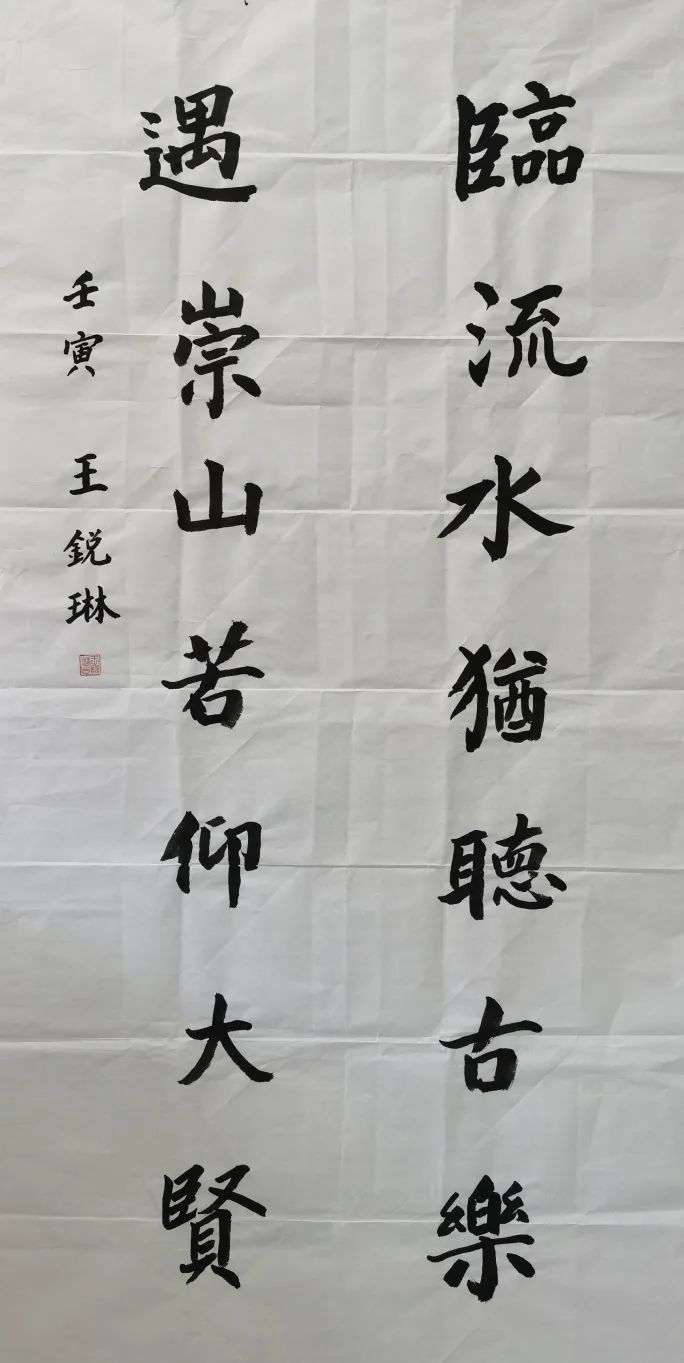 臨流水猶聽古樂
遇崇山若仰大賢
壬寅 王鋭琳